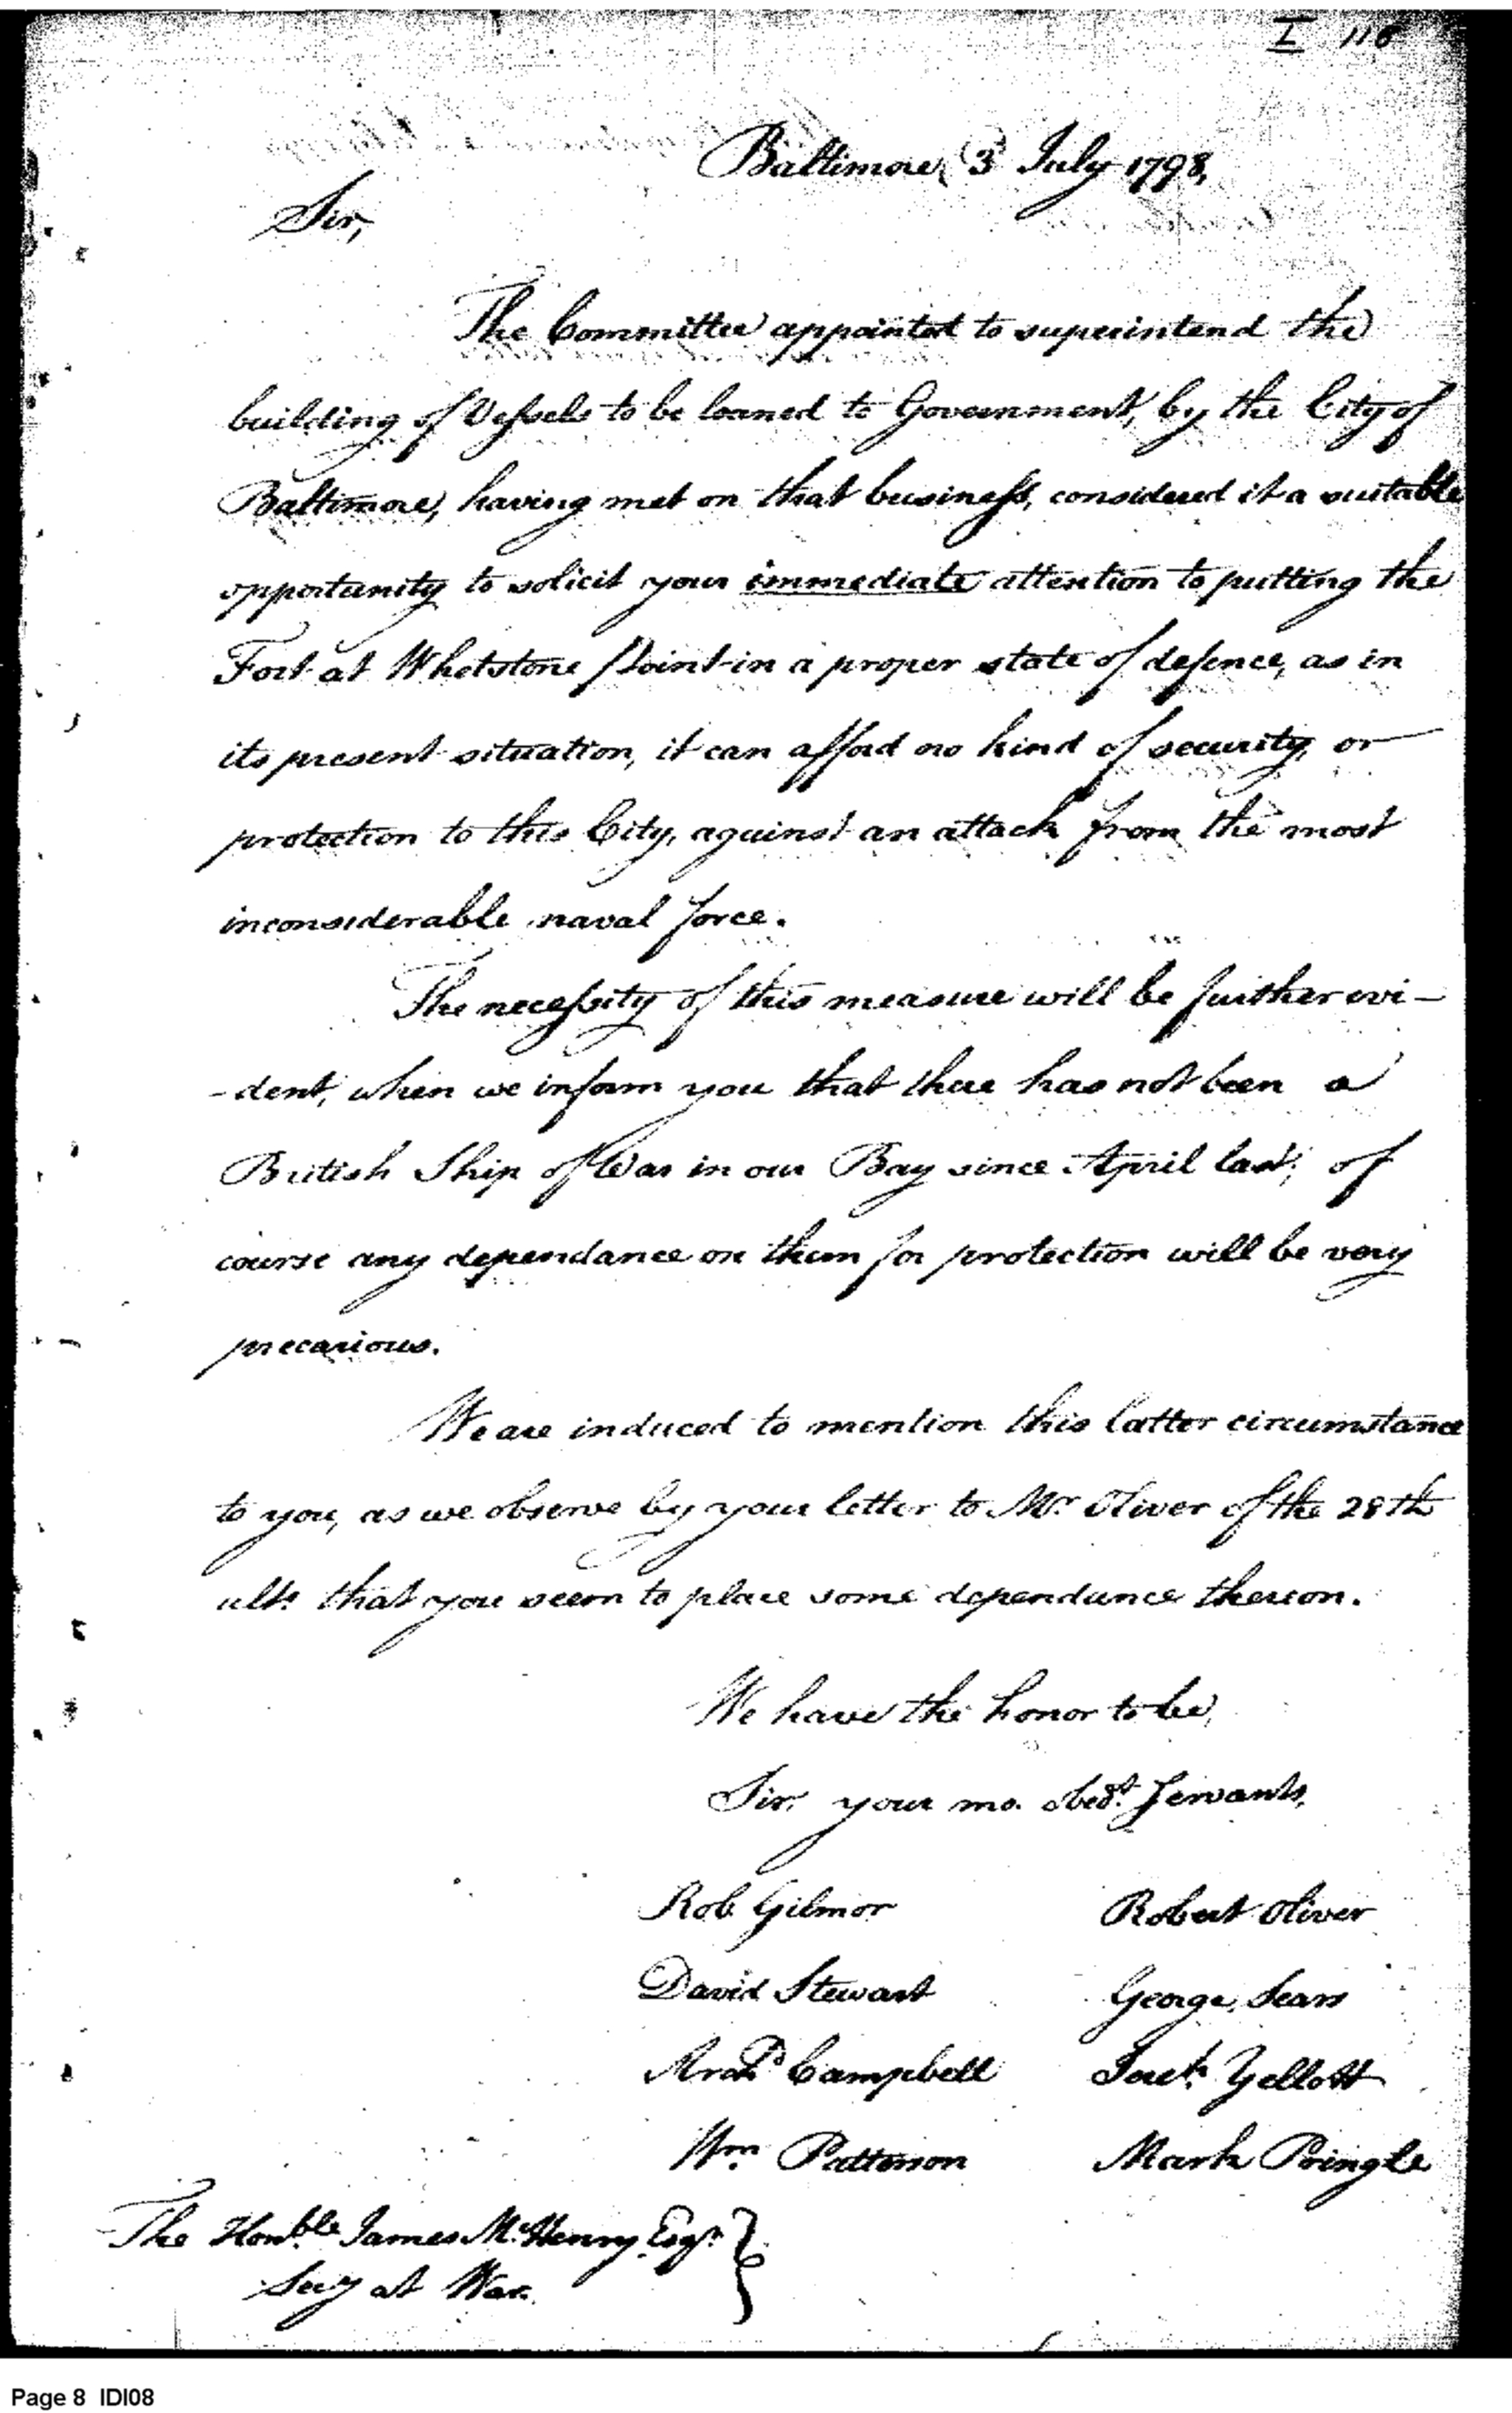 I 116
Baltimore, 3d July 1798,
Sir,
The Committee appointed to superintend the
building of Vessels to be loaned to Government, by the City of
Baltimore, having met on that business, considered it a suitable
opportunity to solicit your immediate attention to putting the
Fort at Whetstone Point in a proper state of defence, as in
its present situation, it can afford no kind of security, or
protection to this City, against an attack from the most
inconsiderable naval force.
The necessity of this measure will be further evi-
-dent, when we inform you that there has not been a
British Ship of War in our Bay since April last; of
course any dependance on them for protection will be very
precarious.
We are induced to mention this latter circumstance
to you, as we observe by your letter to Mr. Oliver of the 28th
ulto. that you seem to place some dependance thereon.
We have the honor to be,
Sir, your mo. obedt. Servants,
Rob Gilmor Robert Oliver
David Stewart George Sears
Archd Campbell Jerh. Yellott
Wm. Patterson Mark Pringle
The Honble. James McHenry Esqr.
Secy at War.
Page 8 IDI08